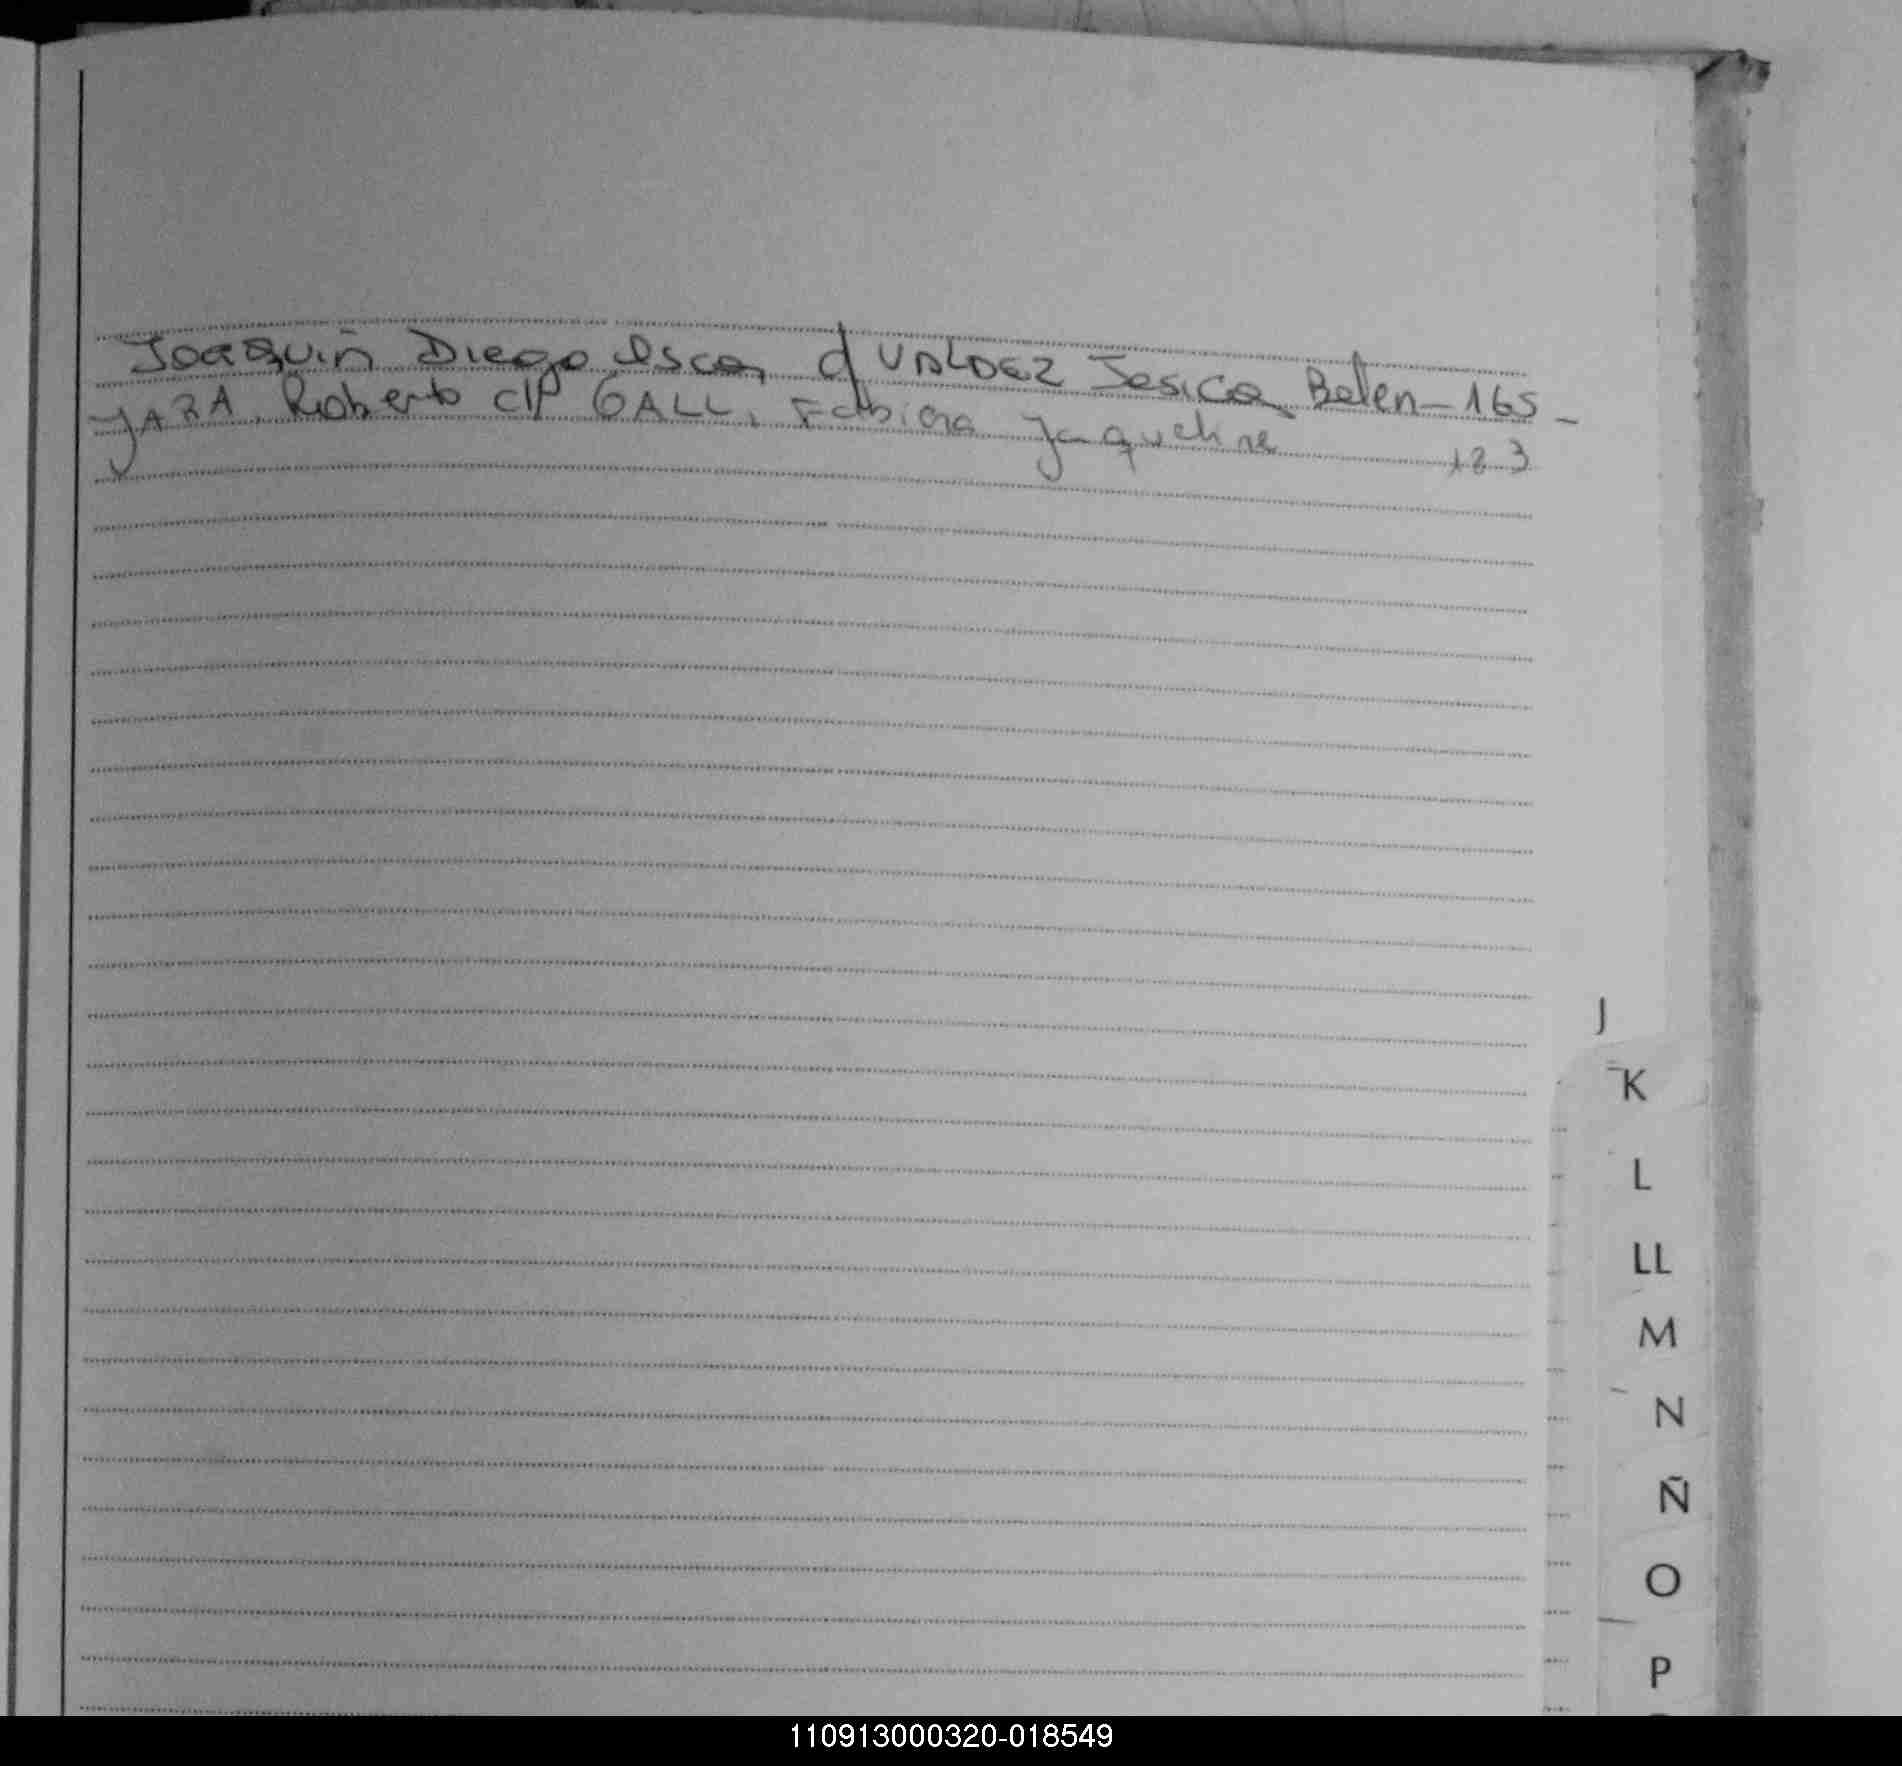 Joaquin Diego Oscar c/ VALDEZ Jesica Belen - 165 -
JARA, Roberto c/P GALL, Fabiana Jaqueline 123
J
K
L
LL
M
N
Ñ
O
P
110913000320-018549